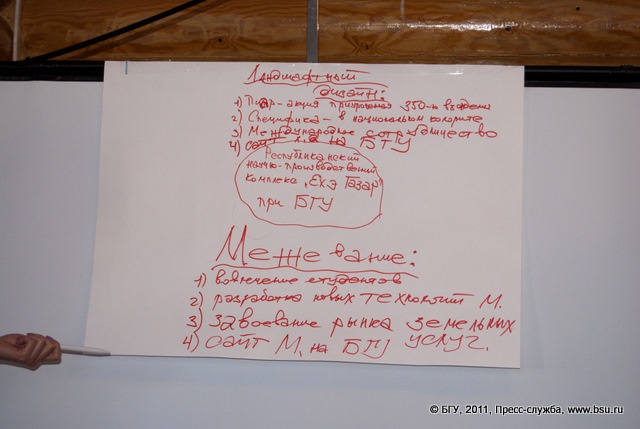 Ландшафтный
дизайн:
1) Пиар-акция 350-
2) Специфика - в национальном колорите
3) Международное сотрудничество
4) сайт л.д на БГУ
Республиканский
научно-производственный
комплекс „Ехэ Газар"
при БГУ
Межевание:
1) вовлечение студентов
2) разработка новых технологий М.
3) завоевание рынка земельных
услуг.
4) сайт М. на БГУ
© БГУ, 2011, Пресс-служба, www.bsu.ru